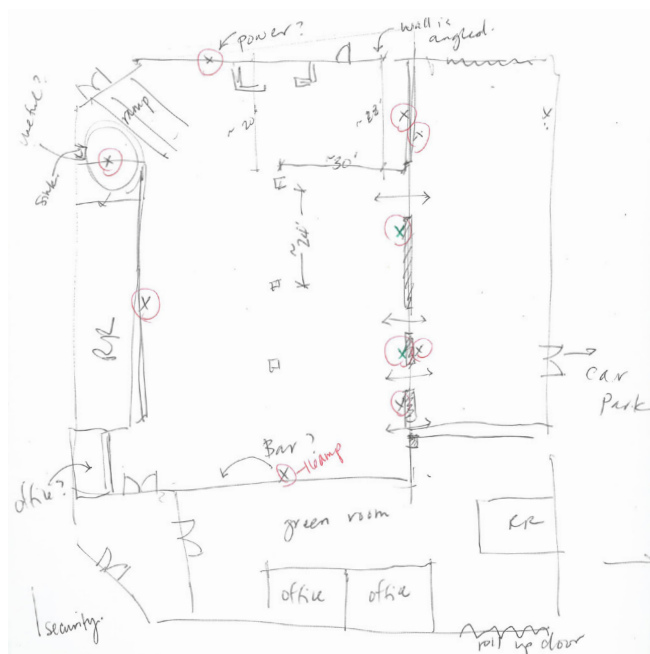 power?
wall is
angled.
ramp
useful?
sink
~ 20'
~ 23'
~30'
~ 24'
RR
car
Park
Bar?
16amp
office?
green room
RR
office
office
security.
roll up door